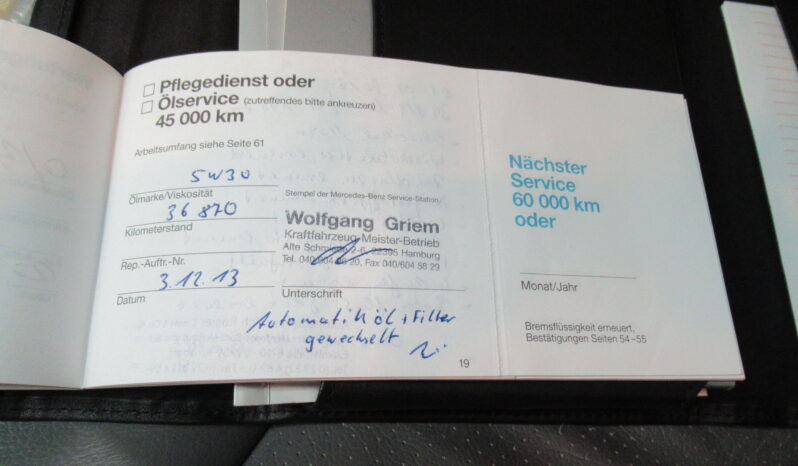 Pflegedienst oder
Ölservice (zutreffendes bitte ankreuzen)
45 000 km
Arbeitsumfang siehe Seite 61
5W30
Ölmarke/Viskosität
36 870
Kilometerstand
Rep.-Auftr.-Nr.
3.12.13
Datum
Stempel der Mercedes-Benz Service-Station
Wolfgang Griem
Kraftfahrzeug-Meister-Betrieb
Alte 2-6, 22395 Hamburg
Tel. 20, Fax 040/604 58 29
Unterschrift
Automatiköl + Filter
gewechselt
19
Nächster
Service
60 000 km
oder
Monat/Jahr
Bremsflüssigkeit erneuert,
Bestätigungen Seiten 54–55